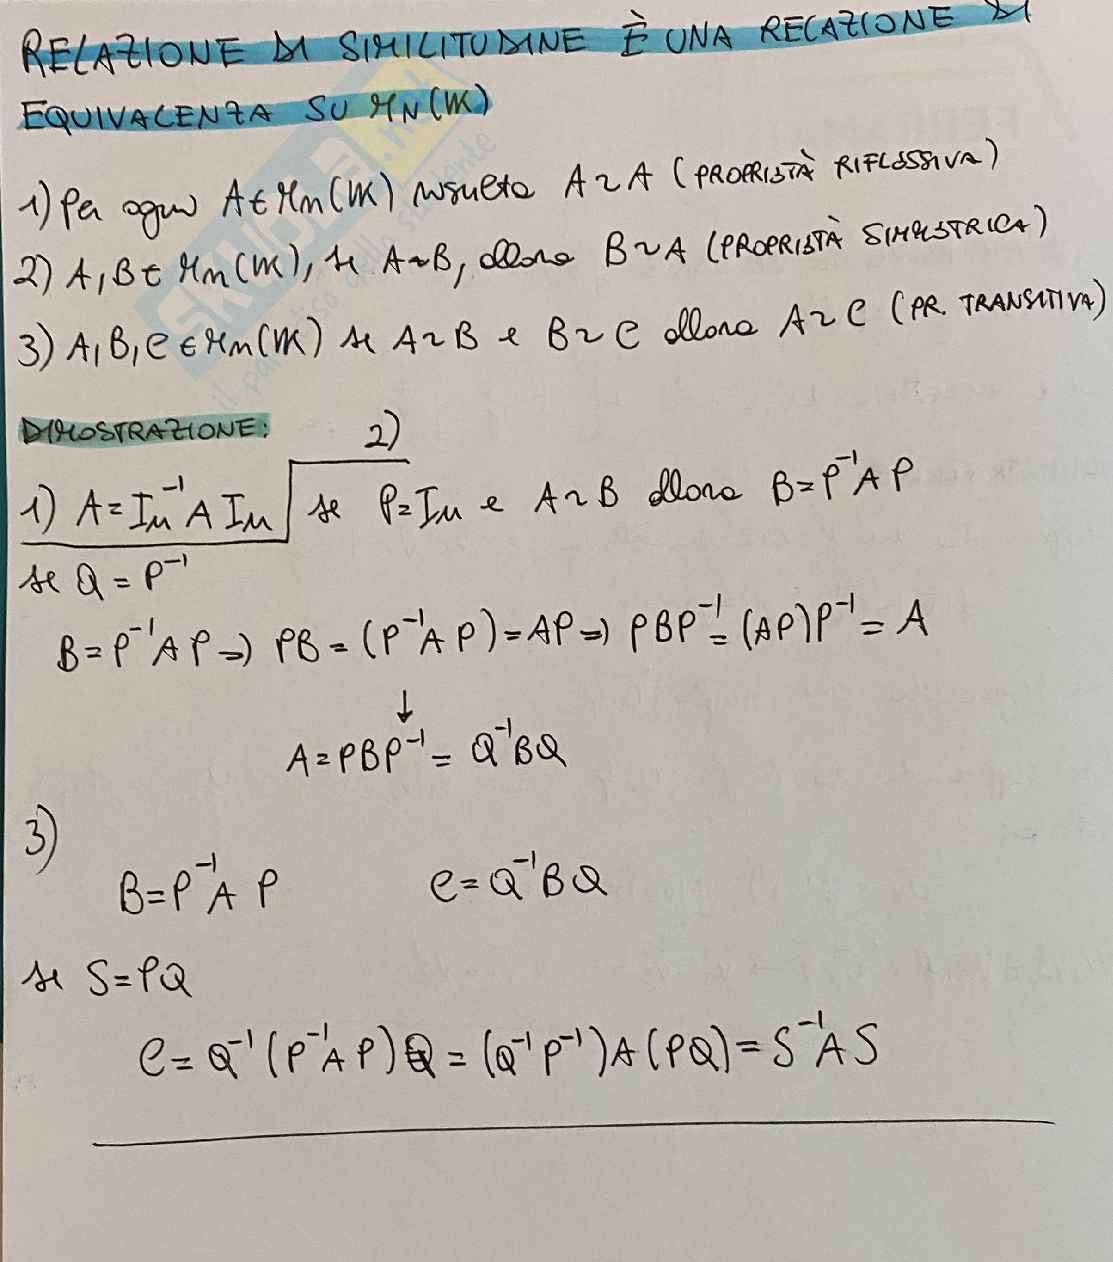 RELAZIONE DI SIMILITUDINE È UNA RELAZIONE DI
EQUIVALENZA SU Mn(K)
1) Per ogni A ∈ Mn(K) risulta A ~ A (PROPRIETÀ RIFLESSIVA)
2) A, B ∈ Mn(K), se A ~ B, allora B ~ A (PROPRIETÀ SIMMETRICA)
3) A, B, C ∈ Mn(K) se A ~ B e B ~ C allora A ~ C (PR. TRANSITIVA)
DIMOSTRAZIONE:
1) A = In⁻¹ A In
2)
se P = In e A ~ B allora B = P⁻¹AP
se Q = P⁻¹
B = P⁻¹AP ⇒ PB = (P⁻¹AP) = AP ⇒ PBP⁻¹ = (AP)P⁻¹ = A
↓
A = PBP⁻¹ = Q⁻¹BQ
3)
B = P⁻¹AP C = Q⁻¹BQ
se S = PQ
C = Q⁻¹(P⁻¹AP)Q = (Q⁻¹P⁻¹)A(PQ) = S⁻¹AS
skuola.net